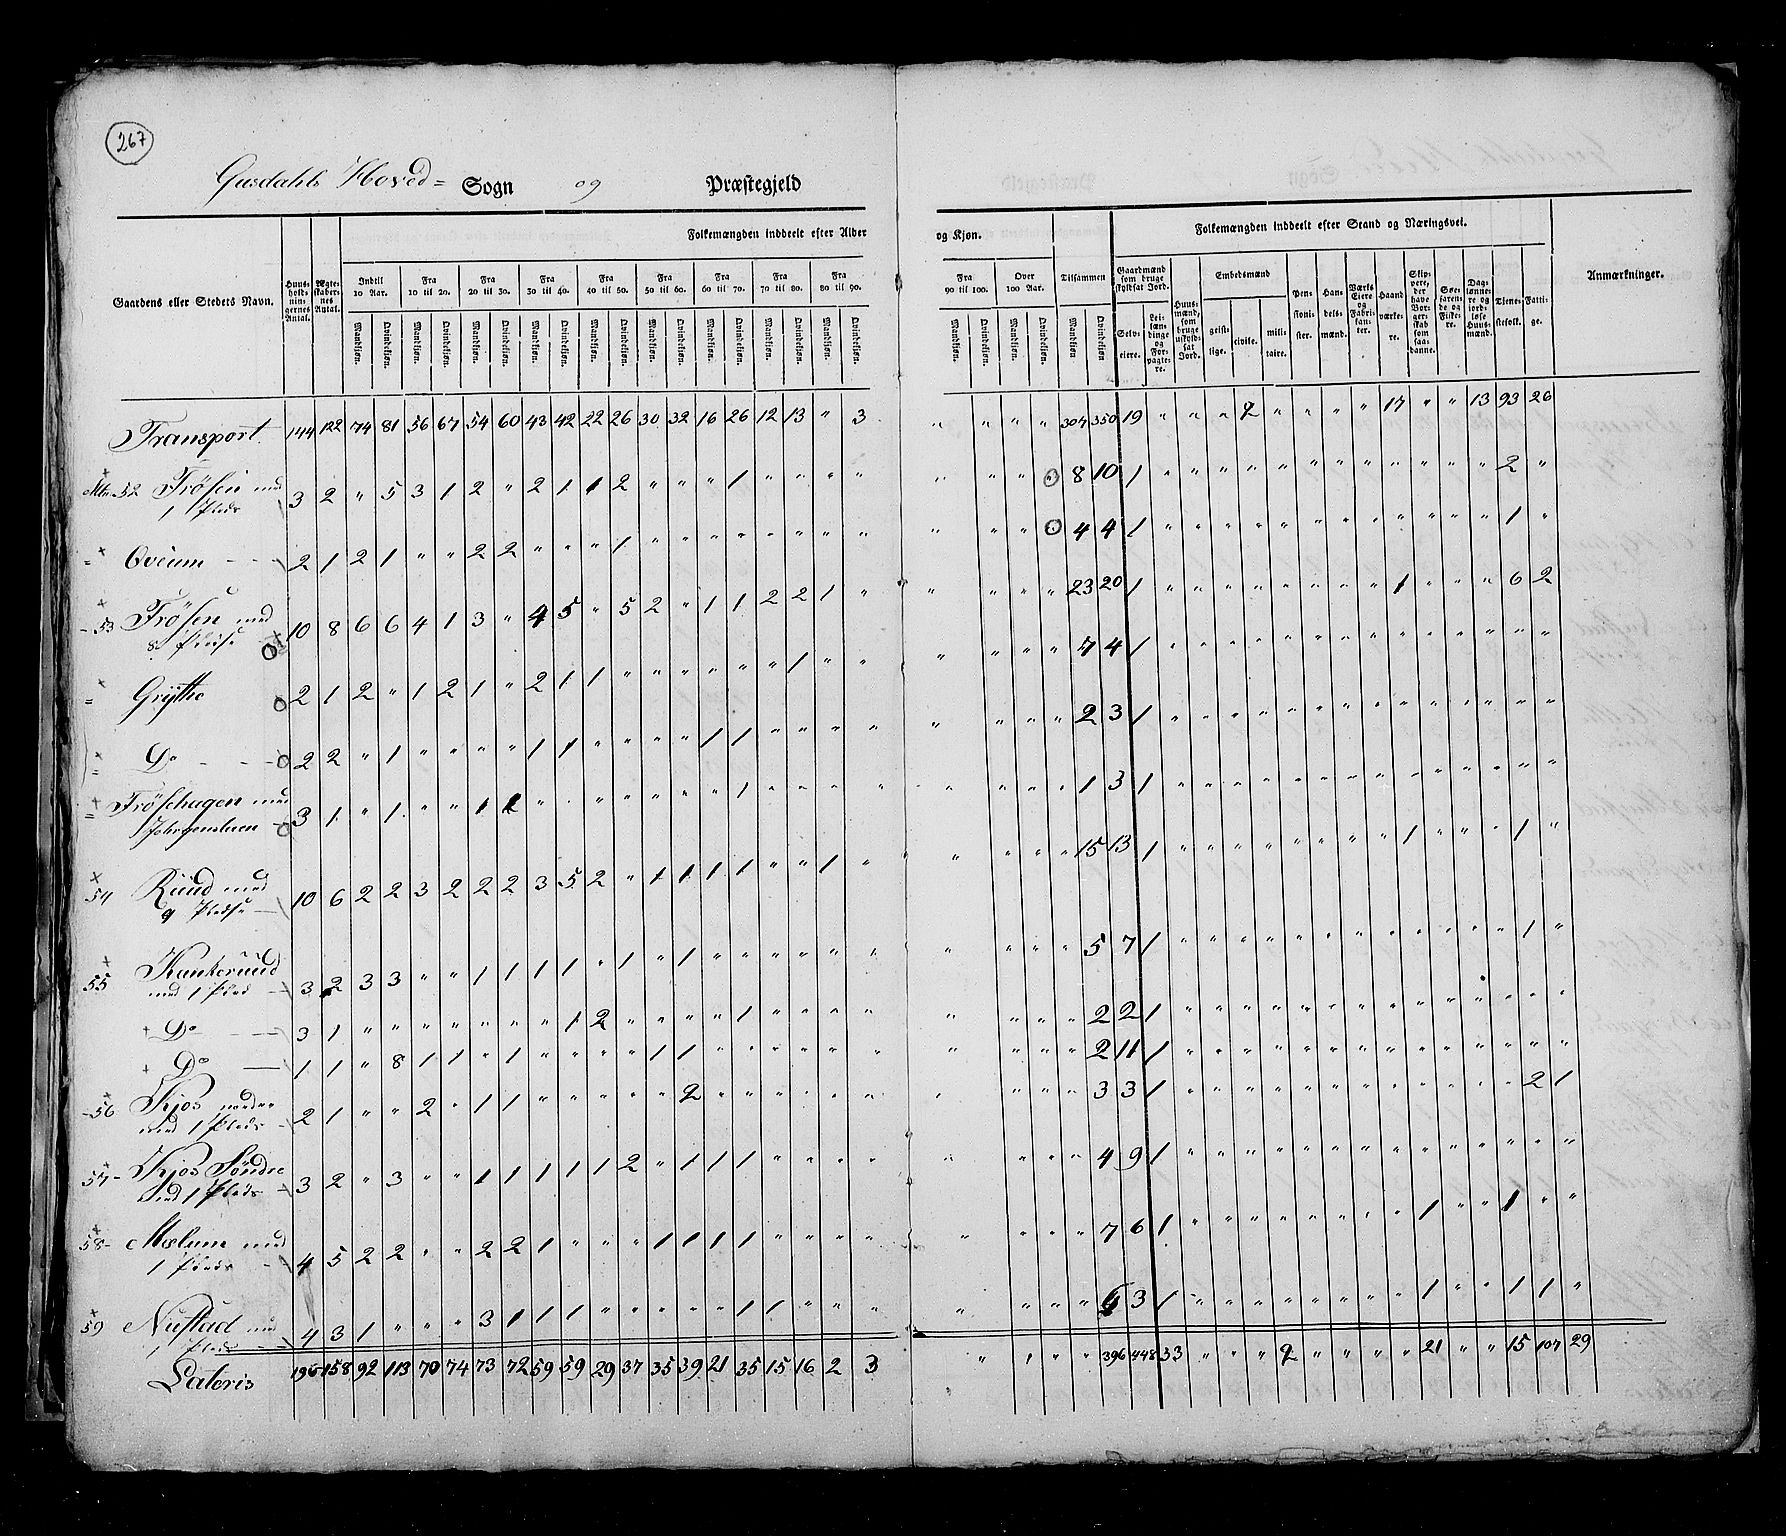 267
Gusdahls Hoved= Sogn og Præstegjeld
Gaardens eller Stedets Navn. Huus-holdningernes Antal. Ægteskabernes Antal. Folkemængden inddeelt efter Alder og Kjøn. Tilsammen Folkemængden inddeelt efter Stand og Næringsvei. Anmærkninger.
Indtil 10 Aar. Fra 10 til 20. Fra 20 til 30. Fra 30 til 40. Fra 40 til 50. Fra 50 til 60. Fra 60 til 70. Fra 70 til 80. Fra 80 til 90. Fra 90 til 100. Over 100 Aar.
Mandkjøn. Qvindekjøn. Mandkjøn. Qvindekjøn. Mandkjøn. Qvindekjøn. Mandkjøn. Qvindekjøn. Mandkjøn. Qvindekjøn. Mandkjøn. Qvindekjøn. Mandkjøn. Qvindekjøn. Mandkjøn. Qvindekjøn. Mandkjøn. Qvindekjøn. Mandkjøn. Qvindekjøn. Mandkjøn. Qvindekjøn. Mandkjøn Qvindekjøn
Gaardmænd som bruge skyldsat Jord. Selveiere. Leilændinge og Forpagtere. Huusmænd, som bruge uskyldsat Jord. Embedsmænd geistlige. civile. militaire. Pensionister. Handelsmænd. Værks Eiere og Fabrikanter. Haandværkere. Skippere, der have Borgerskab som saadanne. Søefarende og Fiskere. Daglønnere og jordløse Huusmænd. Tjenestefolk. Fattige.
Transport 144 122 74 81 56 67 54 60 43 42 22 26 30 32 16 26 12 13 " 3 " " " " 304 350 19 " " " 2 " " " " 17 " " 13 93 26
Mtr. 52 Frösen med 3 2 " 5 3 1 2 " 2 1 1 2 " " " 1 " " " " " " " 8 10 1 " " " " " " " " " " " " 2 "
1 Plads
" Oveum 2 1 2 1 " " 2 2 " " " 1 " " " " " " " " " " " 4 4 1 " " " " " " " " " " " " 1 "
53 Frösen med 10 8 6 6 4 1 3 " 4 5 " 5 2 " 1 1 2 2 1 " " " " " 23 20 1 " " " " " " " " 1 " " " 6 2
8 Pladse
" Grytte 2 1 2 " 1 2 1 " 2 1 1 " " " " " " 1 " " " " " " 7 4 1 " " " " " " " " " " " " " "
" Do 2 2 " 1 " " " " 1 1 " " " " 1 1 " " " " " " " " 2 3 1 " " " " " " " " " " " " " "
" Fröshagen med 3 1 " 1 " " 1 1 " " " " " " " 1 " " " " " " " " 1 3 1 " " " " " " " " " " " " " "
54 Ruud med 10 6 2 2 3 2 2 2 3 5 2 " 1 1 1 1 " " 1 " " " " " 15 13 1 " " " " " " " " 1 " " " 1 "
9 Pladse
55 Kankerud 3 2 3 3 " " 1 1 1 1 " 1 " 1 " " " " " " " " " " 5 7 1 " " " " " " " " " " " " 1 "
med 1 Plad
Do 3 1 " " " " " " " 1 2 " " " " 1 " " " " " " " " 2 2 1 " " " " " " " " " " " " " "
Do 1 1 " 8 1 1 " 1 " " " " 1 1 " " " " " " " " " " 2 11 1 " " " " " " " " " " " " " "
56 Kjos nordre 2 1 " " 2 " 1 1 " " " " " 2 " " " " " " " " " " 3 3 1 " " " " " " " " " " " " 2 1
med 1 Plads
57 Kjos Söndre 3 2 " 3 " " 1 1 1 1 1 2 " 1 1 1 " " " " " " " " 4 9 1 " " " " " " " " " " " " " "
med 1 Plads
58 Mælum med 4 5 2 2 " " 2 2 1 " " " 1 1 1 1 " " " " " " " " 7 6 1 " " " " " " " " 1 " " 1 " "
1 Plads
59 Nustad med 4 3 1 " " " 3 1 1 1 " " " " " 1 1 " " " " " " " 6 3 1 " " " " " " " " 1 " " 1 1 "
1 Plads
Lateris 196 158 92 113 70 74 73 72 59 59 29 37 35 39 21 35 15 16 2 3 " 1 " " 396 448 33 " " " 2 " " " " 21 " " 15 107 29